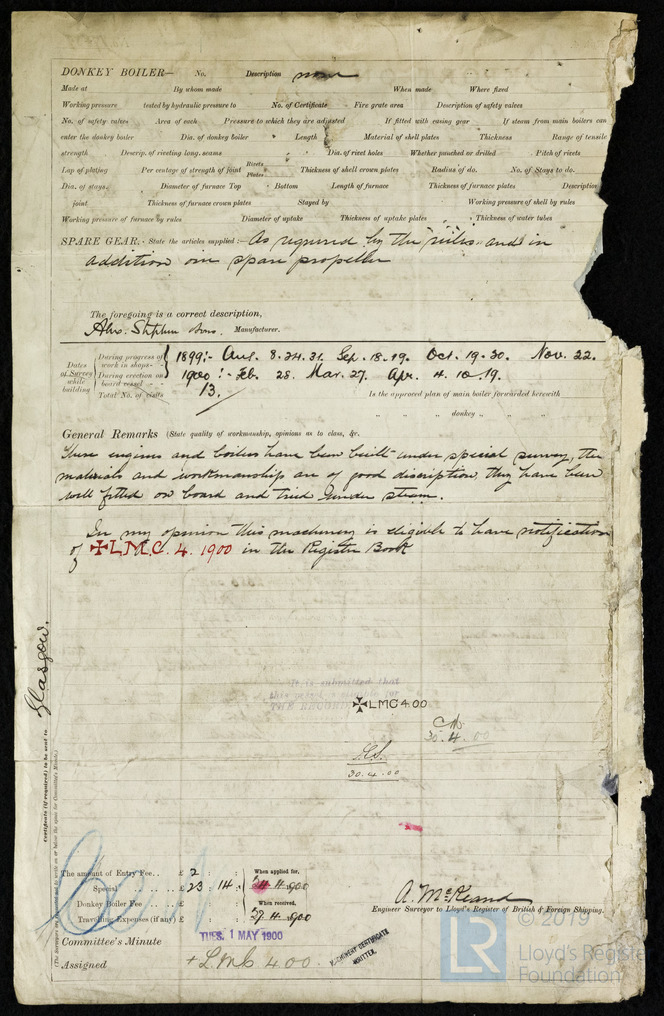 DONKEY BOILER— No. Description none
Made at By whom made When made Where fixed
Working pressure tested by hydraulic pressure to No. of Certificate Fire grate area Description of safety valves
No. of safety valves Area of each Pressure to which they are adjusted If fitted with easing gear If steam from main boilers can
enter the donkey boiler Dia. of donkey boiler Length Material of shell plates Thickness Range of tensile
strength Descrip. of riveting long. seams Dia. of rivet holes Whether punched or drilled Pitch of rivets
Lap of plating Per centage of strength of joint Rivets Plates Thickness of shell crown plates Radius of do. No. of Stays to do.
Dia. of stays. Diameter of furnace Top Bottom Length of furnace Thickness of furnace plates Description
joint Thickness of furnace crown plates Stayed by Working pressure of shell by rules
Working pressure of furnace by rules Diameter of uptake Thickness of uptake plates Thickness of water tubes
SPARE GEAR. State the articles supplied:— As required by the rules and in
addition one spare propeller
The foregoing is a correct description,
Alex. Stephen Sons. Manufacturer.
Dates of Survey while building
During progress of work in shops-- 1899:- Aug. 8. 24. 31. Sep. 18. 19. Oct. 19. 30. Nov. 22.
During erection on board vessel --- 1900:- Feb. 28. Mar. 27. Apr. 4. 10. 19.
Total No. of visits 13. Is the approved plan of main boiler forwarded herewith
" " donkey " "
General Remarks (State quality of workmanship, opinions as to class, &c.
These engines and boilers have been built under special survey, the
materials and workmanship are of good discription they have been
well fitted on board and tried under steam.
In my opinion this machinery is eligible to have notification
of ✠LMC. 4. 1900 in the Register Book
Glasgow.
Certificate (if required) to be sent to
It is submitted that
this vessel is eligible for
THE RECORD
✠LMC 4.00
30.4.00
30.4.00
The amount of Entry Fee.. £ 2 : : When applied for,
Special .. .. £ 23 : 14 : 1900
Donkey Boiler Fee .. .. £ : : When received,
Travelling Expenses (if any) £ : : 27.4.1900
A. McKeand
Engineer Surveyor to Lloyd's Register of British & Foreign Shipping.
Committee's Minute TUES. 1 MAY 1900
Assigned + LMC 4.00.
MACHINERY CERTIFICATE
WRITTEN.
© 2019
LR Lloyd's Register
Foundation